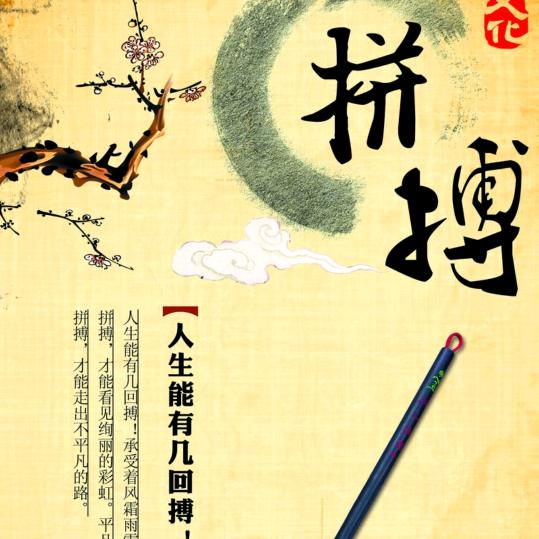 拼搏
文化
人生能有几回搏！
人生能有几回搏！承受着风霜雨
拼搏，才能看见绚丽的彩虹。平凡
拼搏，才能走出不平凡的路。